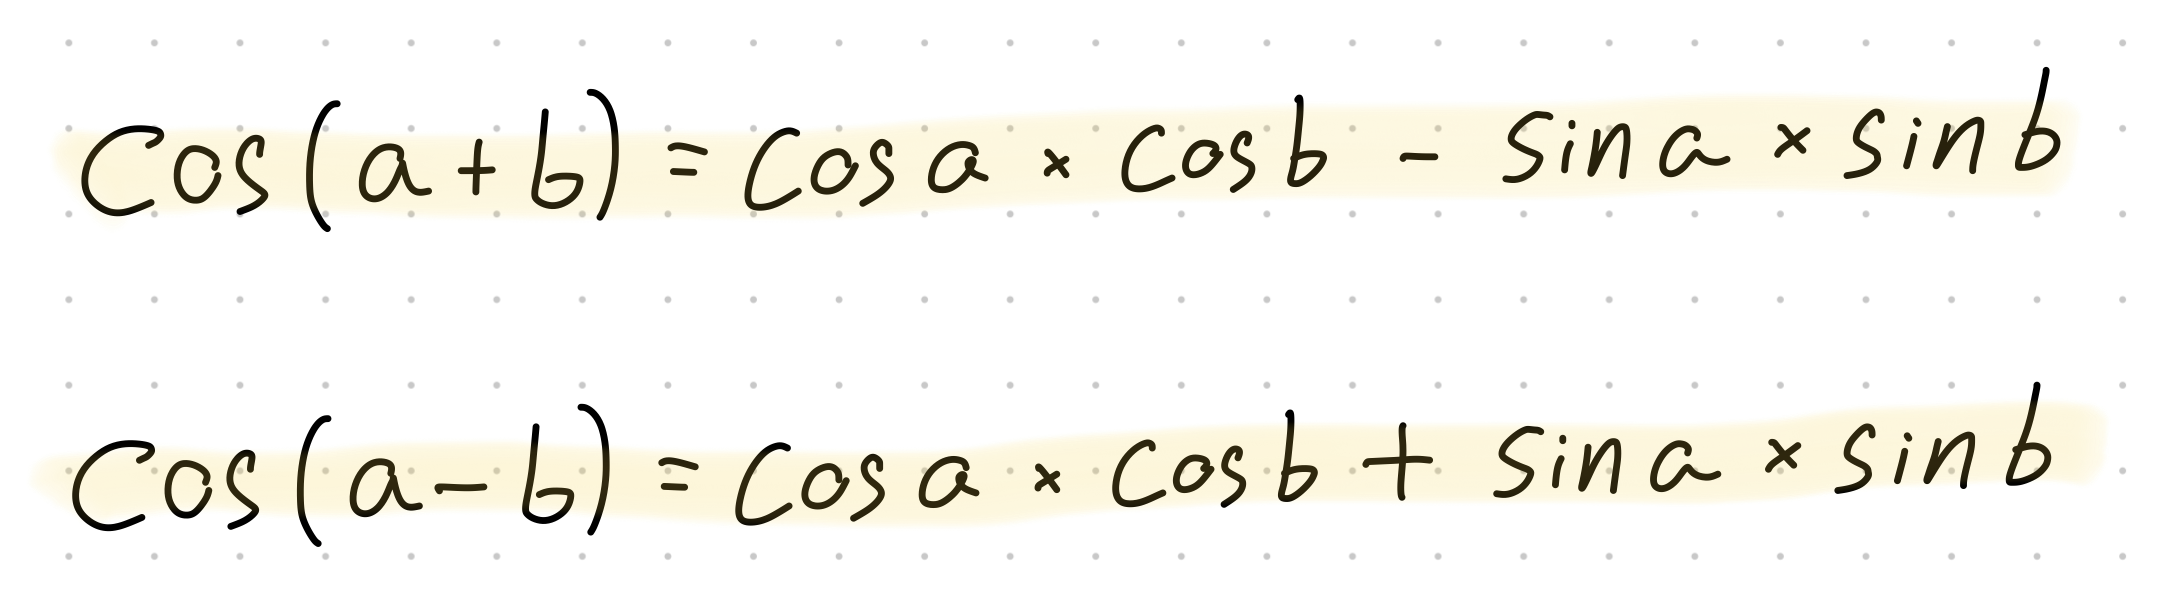 Cos(a+b) = Cosa × Cosb - Sina × sinb
Cos(a-b) = Cosa × Cosb + Sina × sinb